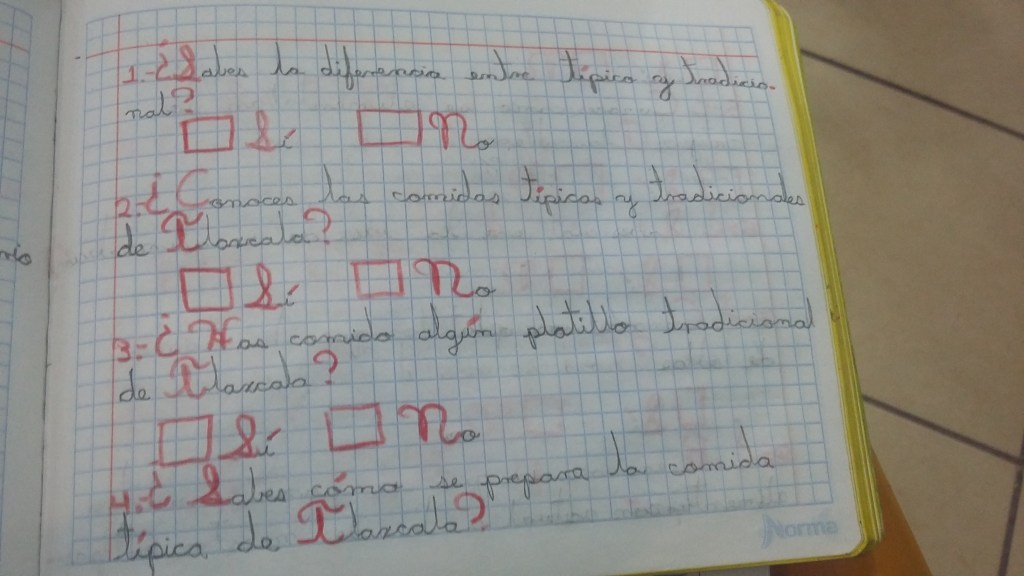 1.-¿Sabes la diferencia entre típica y tradicio-
nal?
Sí No
2.-¿Conoces las comidas típicas y tradicionales
de Tlaxcala?
Sí No
3.-¿Has comido algún platillo tradicional
de Tlaxcala?
Sí No
4.-¿Sabes cómo se prepara la comida
típica de Tlaxcala?
Norma